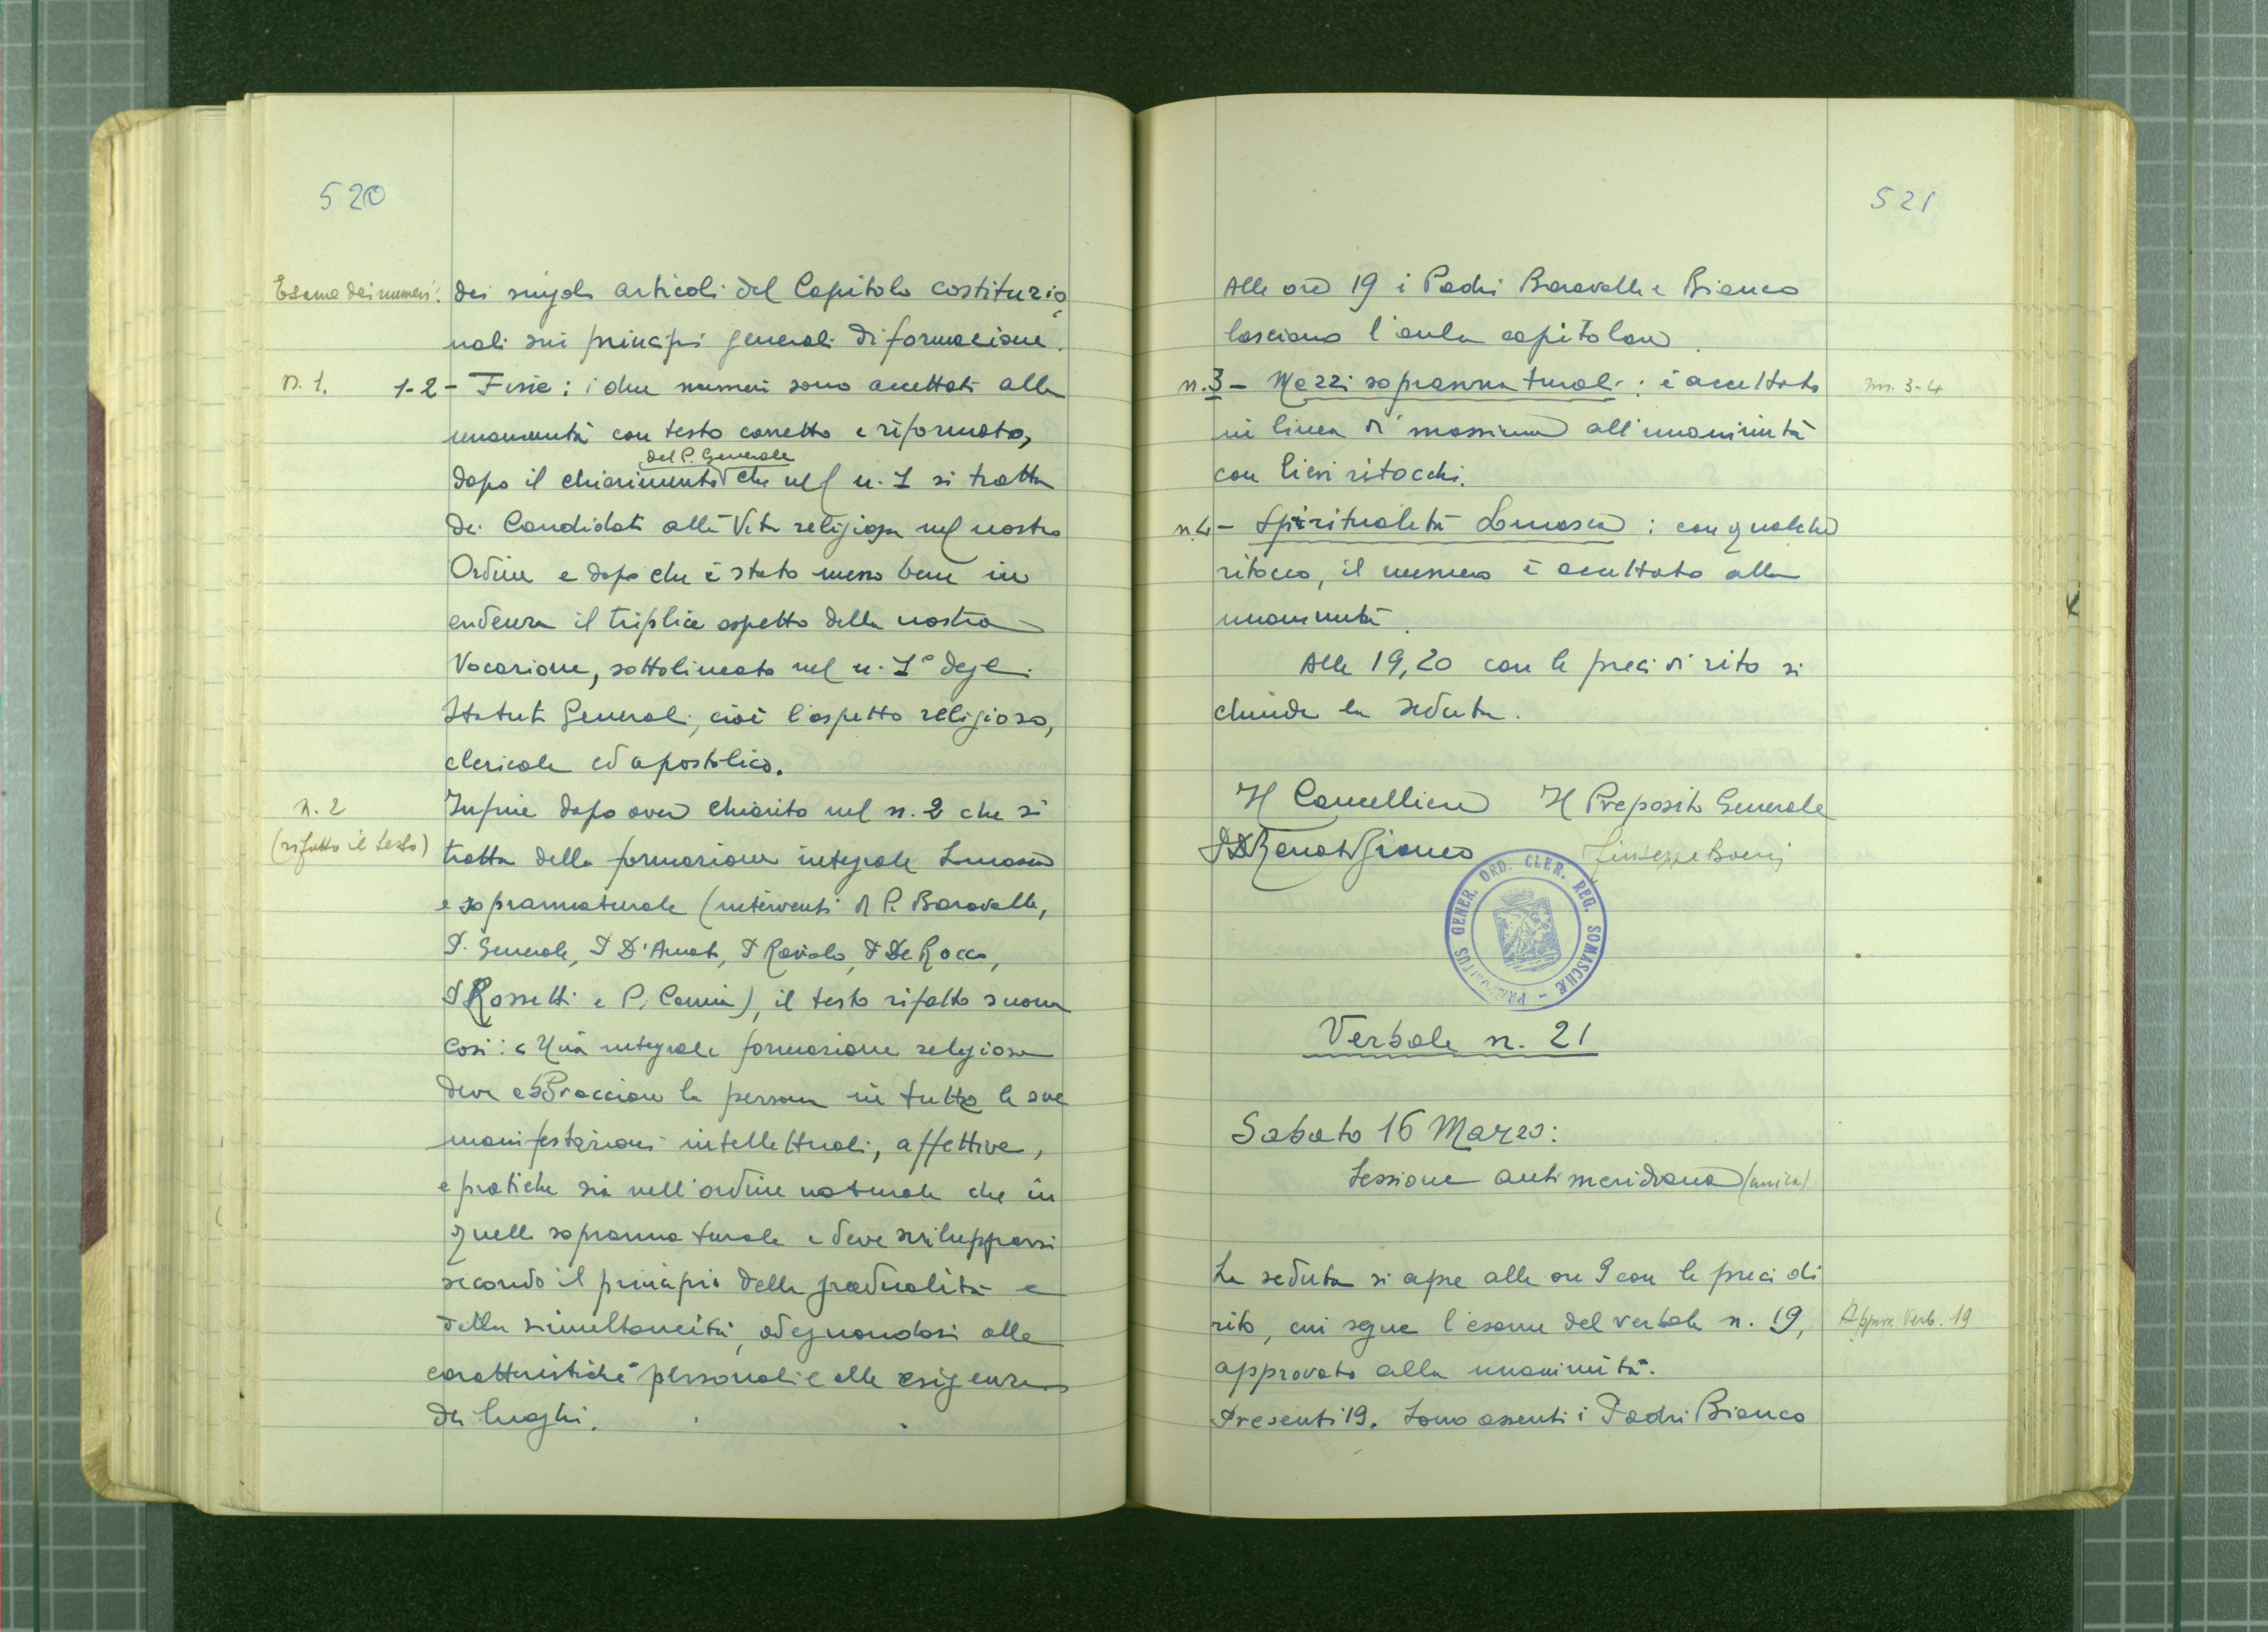 520
Esame dei numeri:
dei singoli articoli del Capitolo costituzio
nali sui principi generali di formazione.
n. 1.
1-2 - Fine: i due numeri sono accettati alla
unanimità con testo corretto e riformato,
del P. Generale
dopo il chiarimento che nel n. 1 si tratta
dei Candidati alla Vita religiosa nel nostro
Ordine e dopo che è stato messo bene in
evidenza il triplice aspetto della nostra
Vocazione, sottolineato nel n. 1° degli
Statuti Generali, cioè l'aspetto religioso,
clericale ed apostolico.
n. 2
(rifatto il testo)
Infine dopo aver chiarito nel n. 2 che si
tratta della formazione integrale umana
e soprannaturale (interventi di P. Baravalle,
P. Generale, P D'Amato, P Raviolo, P De Rocco,
P Rossetti e P. Camia), il testo rifatto suona
così: « Una integrale formazione religiosa
deve abbracciare la persona in tutte le sue
manifestazioni intellettuali, affettive,
e pratiche sia nell'ordine naturale che in
quello soprannaturale e deve svilupparsi
secondo il principio della gradualità e
della simultaneità, adeguandosi alle
caratteristiche personali e alle esigenze
dei luoghi.
521
Alle ore 19 i Padri Baravalle e Bianco
lasciano l'aula capitolare.
n. 3 - Mezzi soprannaturali: è accettato
nn. 3-4
in linea di massima all'unanimità
con lievi ritocchi.
n. 4 - Spiritualità Somasca: con qualche
ritocco, il numero è accettato alla
unanimità.
Alle 19,20 con le preci di rito si
chiude la seduta.
Il Cancelliere Il Preposito Generale
P. Renato Bianco Giuseppe Boeris
PRÆPOSITUS GENER. ORD. CLER. REG. SOMASCHÆ -
Verbale n. 21
Sabato 16 Marzo:
Sessione antimeridiana (unica)
La seduta si apre alle ore 9 con le preci di
rito, cui segue l'esame del verbale n. 19,
Approv. Verb. 19
approvato alla unanimità.
Presenti 19. Sono assenti i Padri Bianco